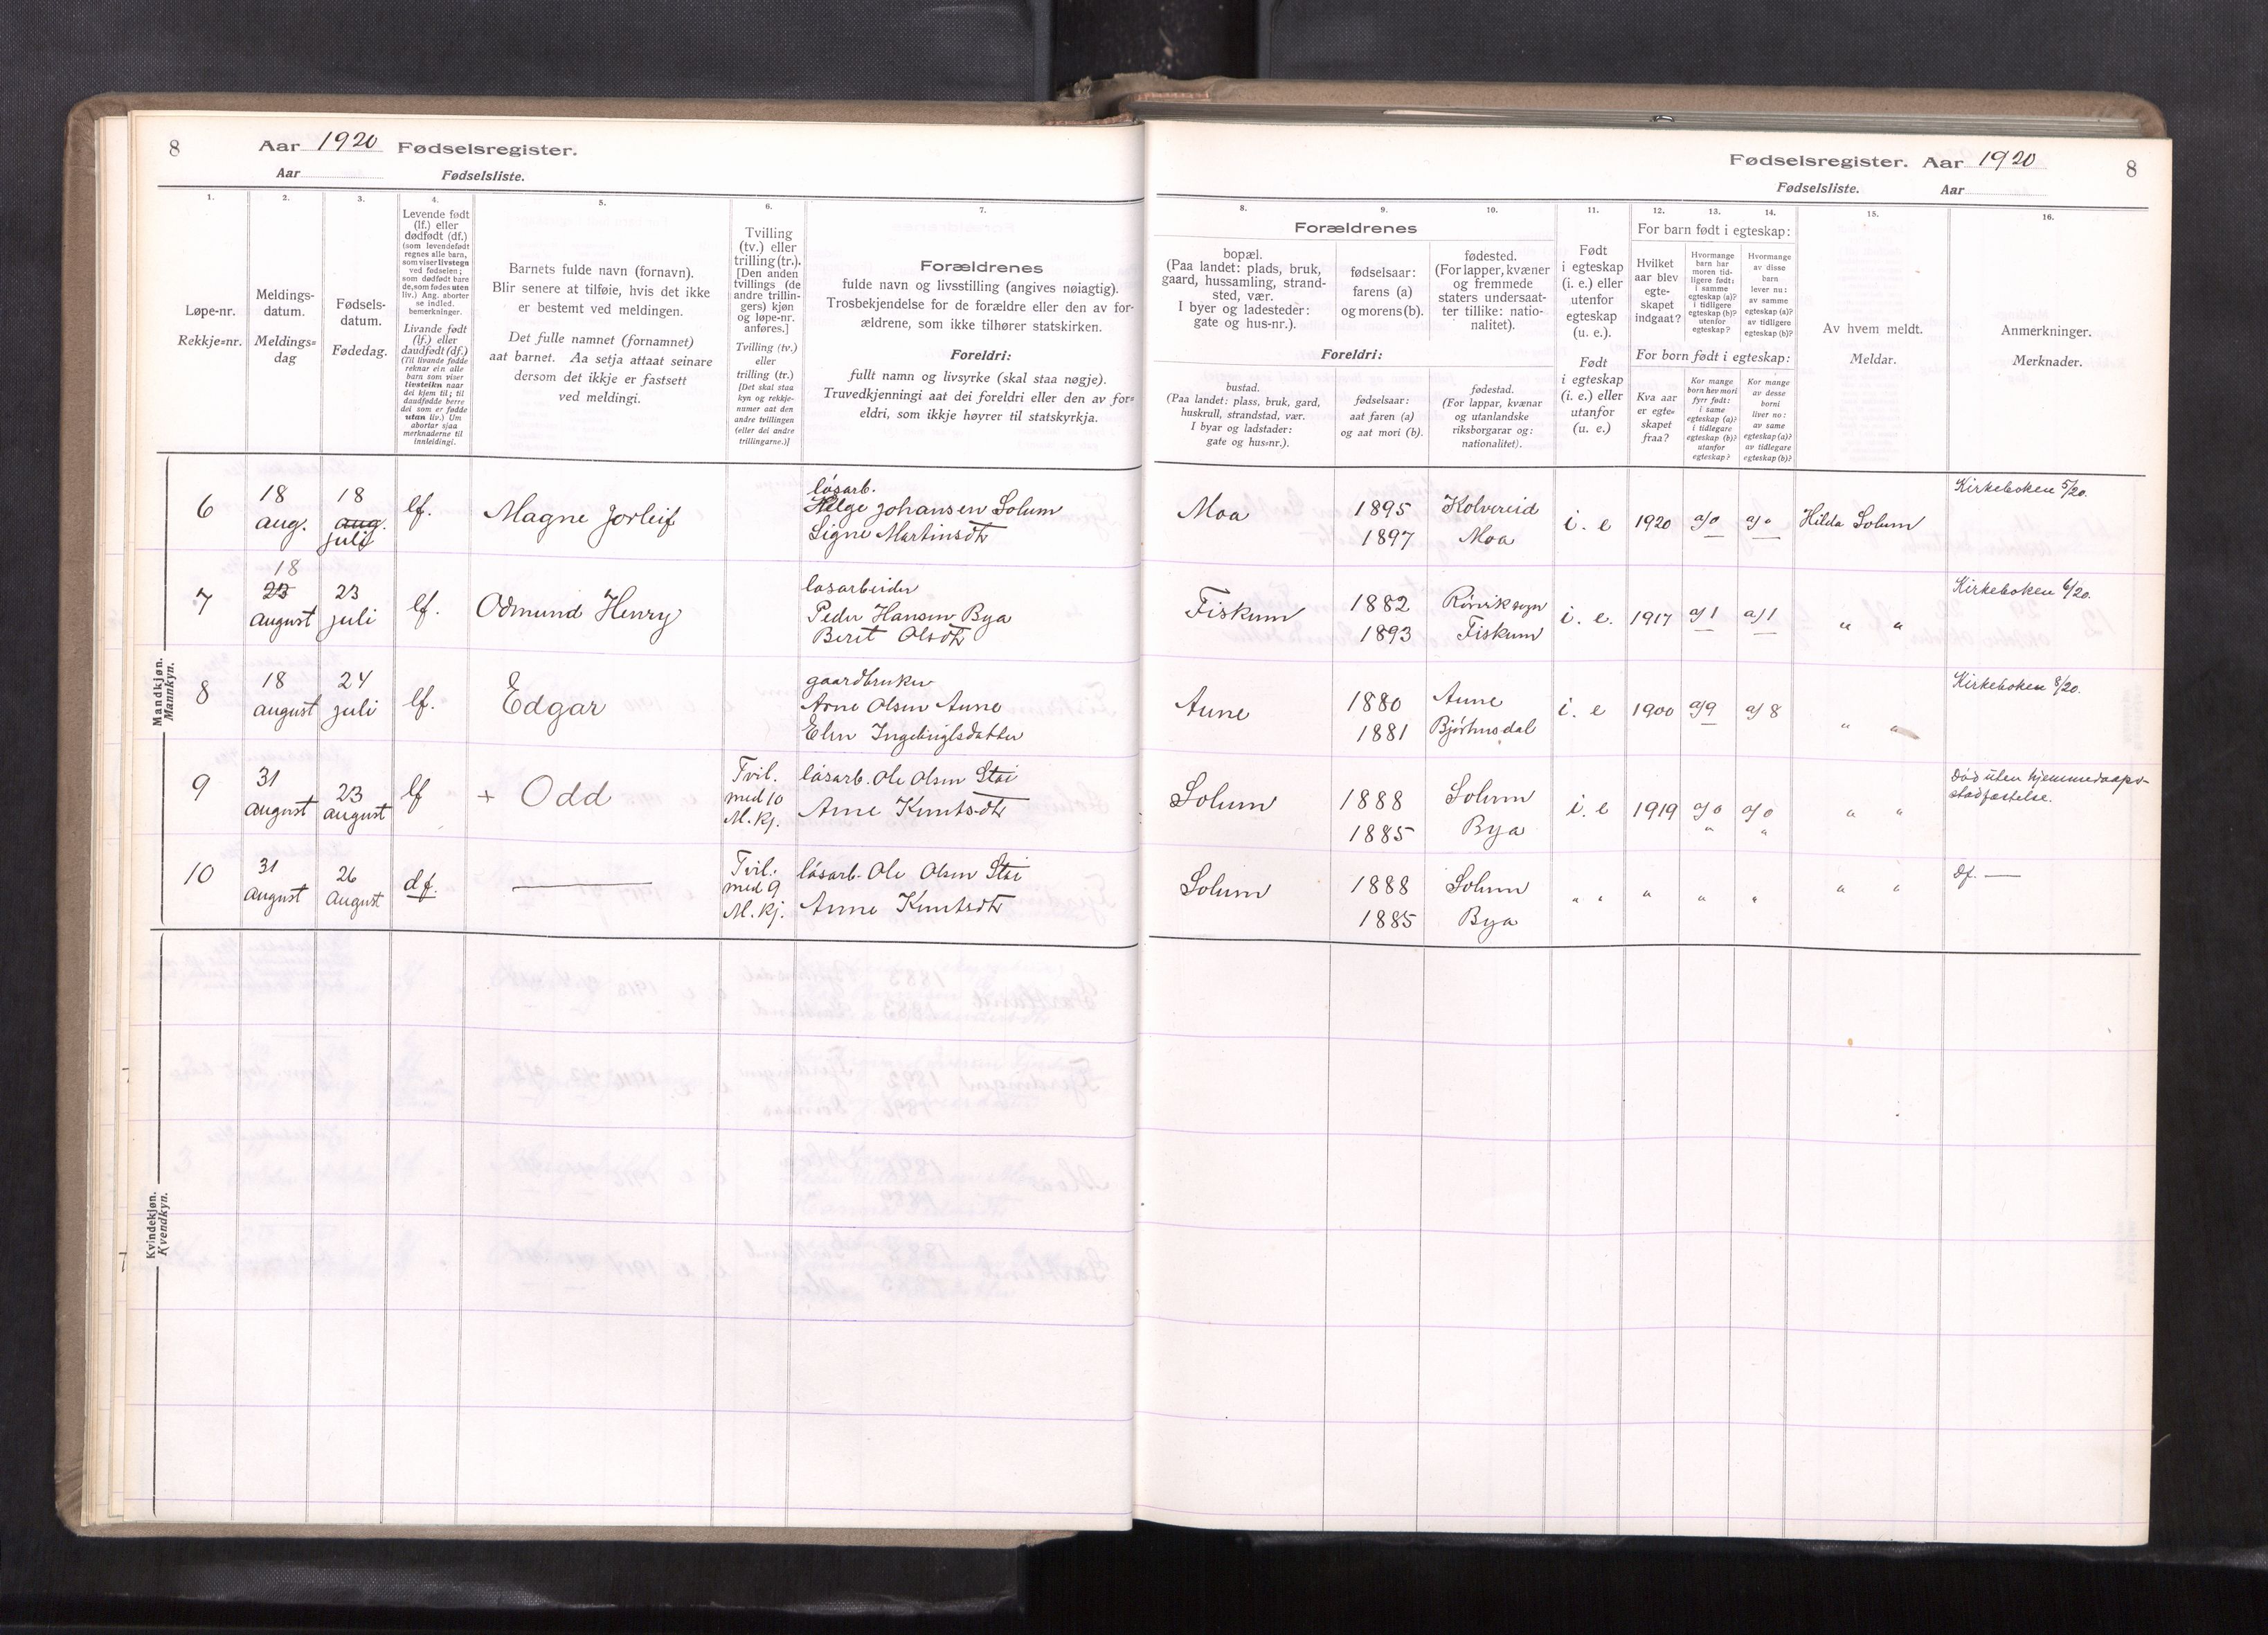 8 Aar 1920 Fødselsregister.
Aar Fødselsliste.
Fødselsregister. Aar 1920 8
Fødselsliste. Aar
1.
Løpe-nr.
Rekkje=nr.
2.
Meldings-
datum.
Meldings=
dag
3.
Fødsels-
datum.
Fødedag.
4.
Levende født
(lf.) eller
dødfødt (df.)
(som levendefødt
regnes alle barn,
som viser livstegn
ved fødselen;
som dødfødt bare
de, som fødes uten
liv.) Ang. aborter
se indled.
bemerkninger.
Livande født
(lf.) eller
daudfødt (df.)
(Til livande fødde
reknar ein alle
barn som viser
livsteikn naar
dei kjem til; til
daudfødde berre
dei som er fødde
utan liv.) Um
abortar sjaa
merknaderne til
innleidingi.
5.
Barnets fulde navn (fornavn).
Blir senere at tilføie, hvis det ikke
er bestemt ved meldingen.
Det fulle namnet (fornamnet)
aat barnet. Aa setja attaat seinare
dersom det ikkje er fastsett
ved meldingi.
6.
Tvilling
(tv.) eller
trilling (tr.).
[Den anden
tvillings (de
andre trillin-
gers) kjøn
og løpe-nr.
anføres.]
Tvilling (tv.)
eller
trilling (tr.)
[Det skal staa
kyn og rekkje-
numer aat den
andre tvillingen
(eller dei andre
trillingarne.)]
7.
Forældrenes
fulde navn og livsstilling (angives nøiagtig).
Trosbekjendelse for de forældre eller den av for-
ældrene, som ikke tilhører statskirken.
Foreldri:
fullt namn og livsyrke (skal staa nøgje).
Truvedkjenningi aat dei foreldri eller den av for=
eldri, som ikkje høyrer til statskyrkja.
Forældrenes
8.
bopæl.
(Paa landet: plads, bruk,
gaard, hussamling, strand-
sted, vær.
I byer og ladesteder:
gate og hus-nr.).
9.
fødselsaar:
farens (a)
og morens (b).
10.
fødested.
(For lapper, kvæner
og fremmede
staters undersaat-
ter tillike: natio-
nalitet).
Foreldri:
bustad.
(Paa landet: plass, bruk, gard,
huskrull, strandstad, vær.
I byar og ladstader:
gate og hus=nr.).
fødselsaar:
aat faren (a)
og aat mori (b).
fødestad.
(For lappar, kvænar
og utanlandske
riksborgarar og:
nationalitet).
11.
Født
i egteskap
(i. e.) eller
utenfor
egteskap
(u. e.).
Født
i egteskap
(i. e.) eller
utanfor
(u. e.)
12. 13. 14.
For barn født i egteskap:
Hvilket
aar blev
egte-
skapet
indgaat?
Hvormange
barn har
moren tid-
ligere født:
i samme
egteskap (a)?
i tidligere
egteskap (b)?
utenfor
egteskap?
Hvormange
av disse
barn
lever nu:
av samme
egteskap (a)?
av tidligere
egteskap (b)?
For born født i egteskap:
Kva aar
er egte-
skapet
fraa?
Kor mange
born hev mori
fyrr født:
i same
egteskap (a)?
i tidlegare
egteskap (b)?
utanfor
egteskap?
Kor mange
av desse
borni
liver no:
av same
egteskap (a)?
av tidlegare
egteskap (b)?
15.
Av hvem meldt.
Meldar.
16.
Anmerkninger.
Merknader.
Mandkjøn.
Mannkyn.
6 18 aug. 18 aug. juli lf. Magne Jorleif
løsarb.
Helge Johansen Solum
Signe Martinsdtr
Moa 1895 Kolvereid i. e 1920 a/0 a/0 Hilda Solum Kirkeboken 5/20.
1897 Moa
7 18 23 august 23 juli lf. Odmund Henry
løsarbeider
Peder Hansen Bya
Berit Olsdtr
Fiskum 1882 i. e. 1917 a/1 a/1 " " Kirkeboken 6/20.
1893 Fiskum
8 18 august 24 juli lf. Edgar
gaardbruker
Arne Olsen Aune
Elen
Aune 1880 Aune i. e 1900 a/9 a/8 " " Kirkeboken 8/20.
1881 Bjørhusdal
9 31 august 23 august lf + Odd
Tvil.
med 10
M. kj.
løsarb. Ole Olsen Stai
Anne Knutsdtr
Solum 1888 Solum i. e 1919 a/0 a/0 " "
1885 Bya " "
Død uten hjemmedaaps-
stadfæstelse.
10 31 august 26 august df. —
Tvil.
med 9
M. kj.
løsarb. Ole Olsen Stai
Anne Knutsdtr
Solum 1888 Solum " " " " " " " df. —
1885 Bya
Kvindekjøn.
Kvendkyn.